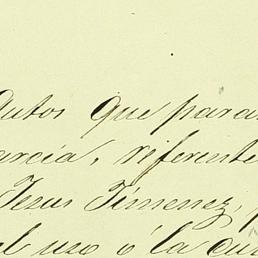 Autos que para
arcia, referente
Jesus Jimenez,
al uso ó la cu